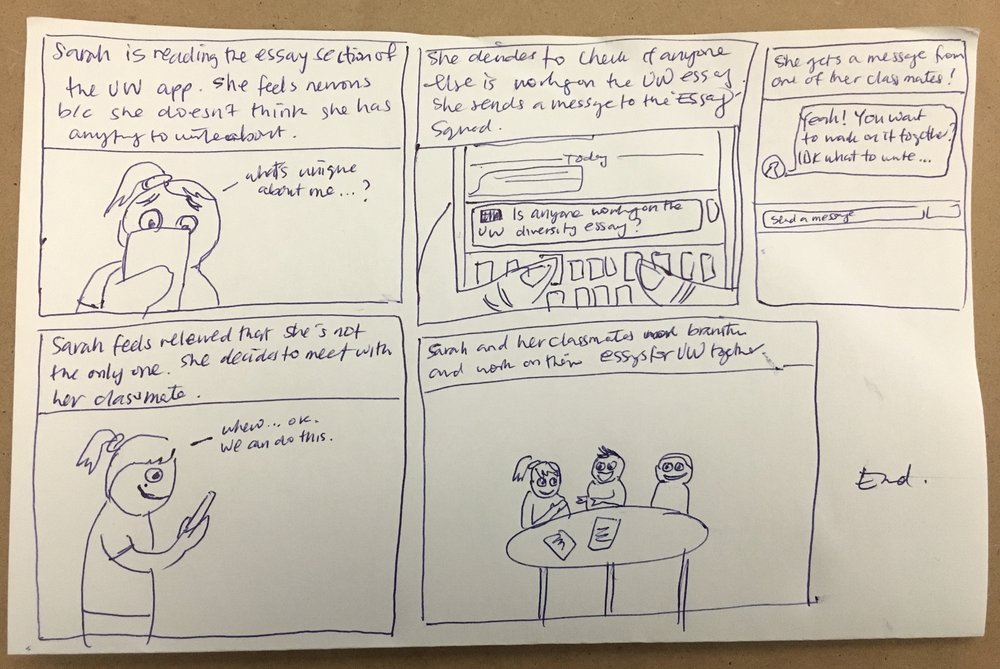 Sarah is reading the essay section of
the UW app. She feels nervous
b/c she doesn't think she has
anyting to write about.
what's unique
about me...?
She decides to check if anyone
else is workng on the UW essay.
She sends a message to the Essay
Squad.
Today
Is anyone workng on the
UW diversity essay?
She gets a message from
one of her class mates!
Yeah! You want
to work on it together?
IDK what to write...
Send a message
Sarah feels releived that she's not
the only one. She decides to meet with
her classmate.
whew... ok.
we can do this.
Sarah and her classmates
and work on their essys for UW together.
End.